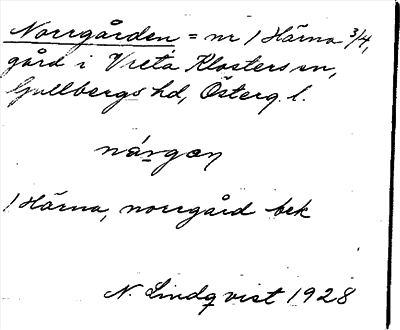 Norrgården = nr 1 Härna 3/4,
gård i Vreta Klosters sn,
Gullbergs hd, Österg. l.
nárgan
1 Härna, norrgård bek
N. Lindqvist 1928